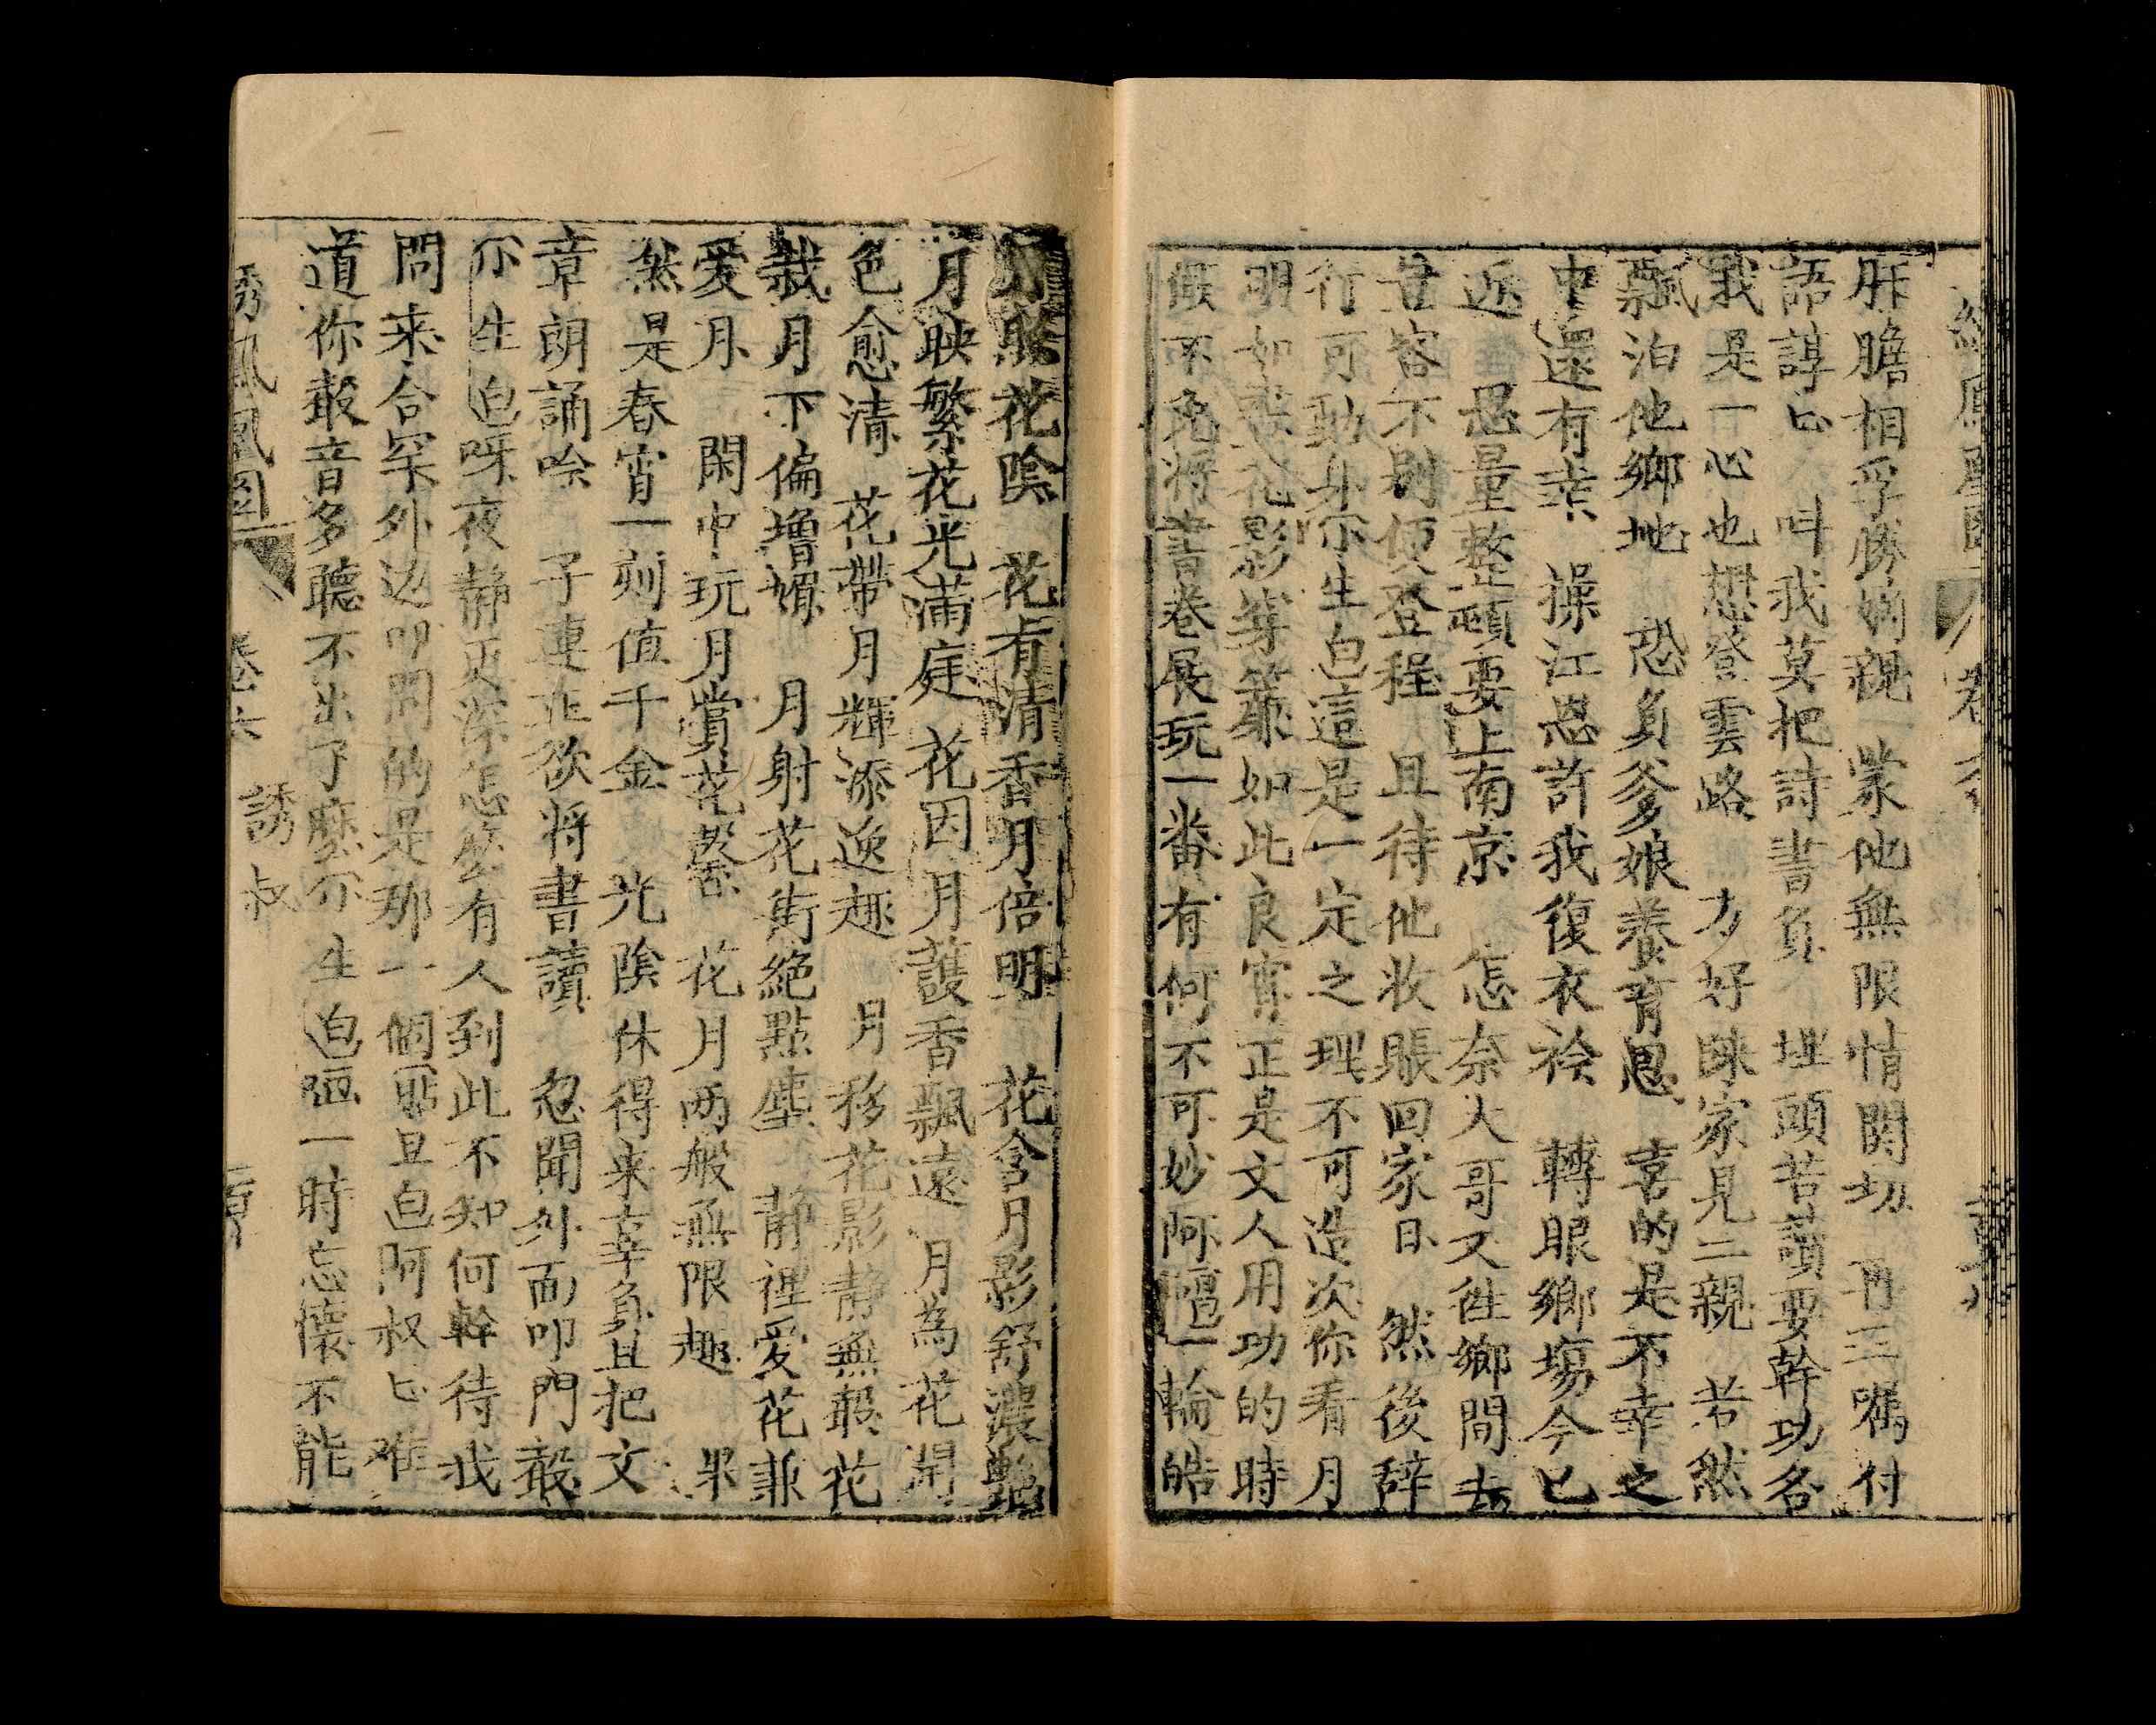 肝膽相孚勝嫡親 蒙他無限情関切 再三嘱付
語諄匕 呌我莫把詩書負 埋頭苦讀要幹功名
我是一心也想登雲路 方好睬家見二親 若然
飄泊他鄉地 恐負爹娘養育恩 喜的是不幸之
中還有幸 操江恩許我復衣衿 轉眼鄉塲今已
近 思量整頓要上南京 怎奈大哥又往鄉間去
豈容不別便登程 且待他收賬回家日 然後辞
行可動身 尒生白這是一定之理不可造次你看月
明如花影篩簾如此良宵正是文人用功的時
候不免将書卷展玩一番有何不可妙阿 一輪皓
月映繁花光滿庭 花因月護香飄遠 月為花開
花陰 花有清香月倍明 花含月影舒濃艶
色愈清 花帶月輝添逸趣 月移花影静無聲 花
栽月下偏增媚 月射花街絶點塵 静裡愛花兼
爱月 閑中玩月賞花馨 花月两般無限趣 果
然是春宵一刻值千金 光陰休得来辜負且把文
章朗誦吟 子謇正欲将書讀 忽聞外面叩門聲
尒生白呀夜静更深怎麽有人到此不知何幹待我
問来合罙外边叩門的是那一個貼旦白阿叔匕难
道你聲音多聽不出了麽尒生白 一時忘懷不能
誘鳳凰圖 卷六 誘叔